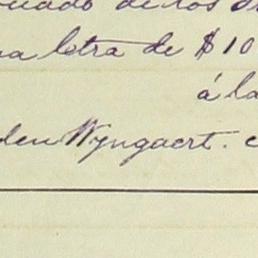 de los
letra de $10
á la
den Wyngaert.